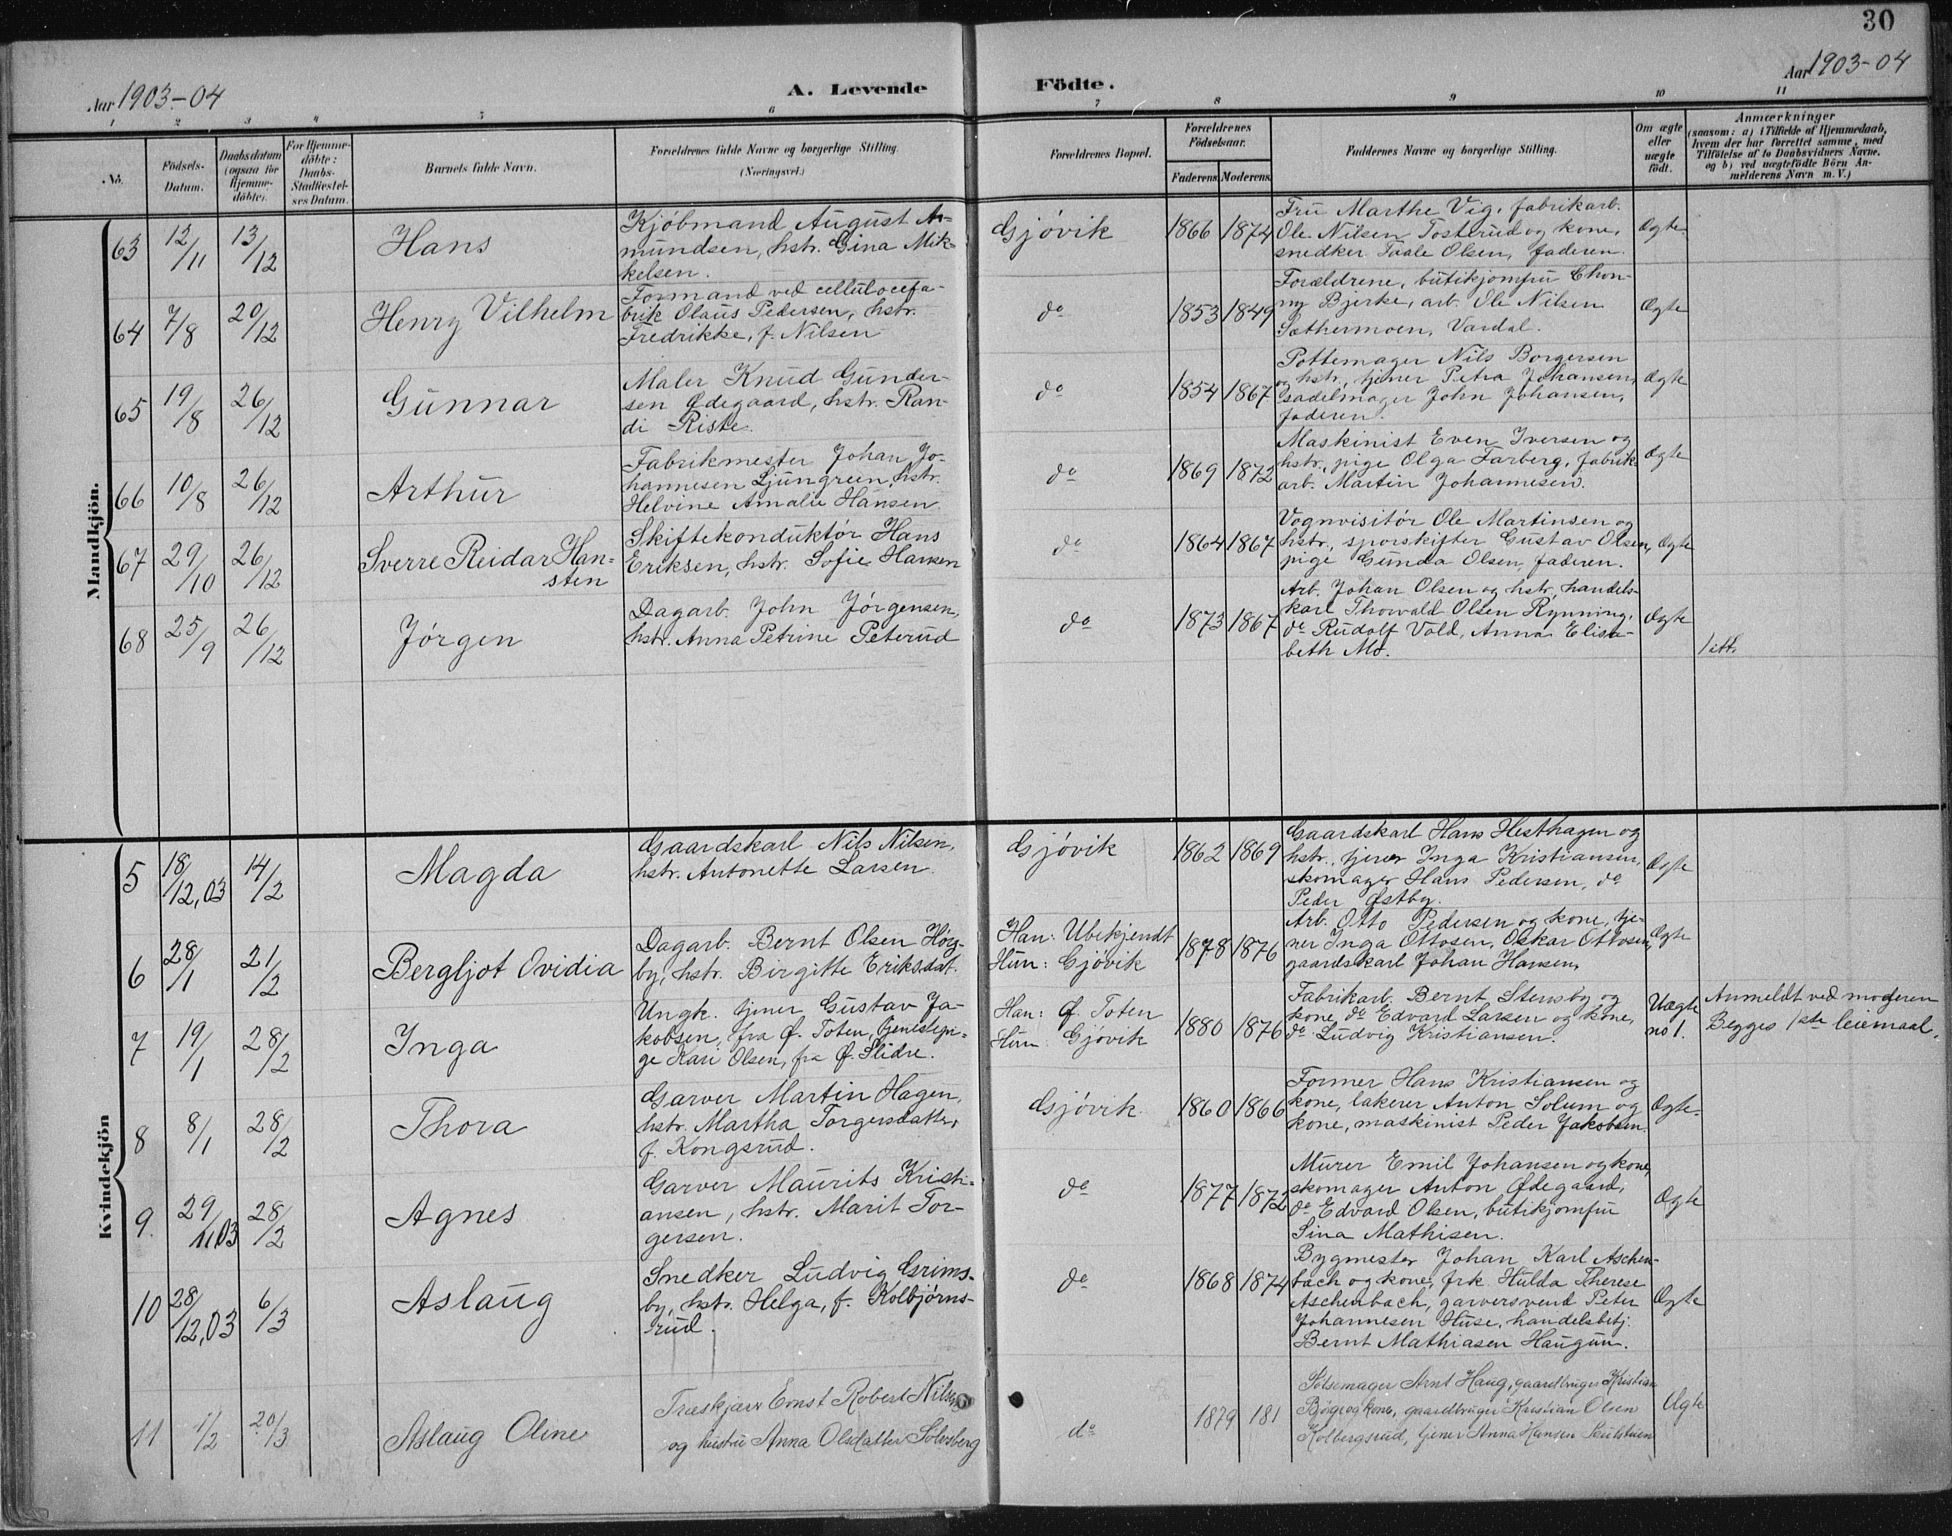 30
Aar 1903-04
A. Levende Födte.
Aar 1903-04
1 2 3 4 5 6 7 8 9 10 11
No.
Födsels-
Datum.
Daabsdatum
(ogsaa for
Hjemme-
döbte).
For Hjemme-
döbte:
Daabs-
Stadfæstel-
ses Datum.
Barnets fulde Navn.
Forældrenes fulde Navne og borgerlige Stilling.
(Næringsvei.)
Forældrenes Bopæl.
Forældrenes
Födselsaar.
Faderens. Moderens.
Faddernes Navne og borgerlige Stilling.
Om ægte
eller
uægte
født.
Anmærkninger
(saasom: a) i Tilfælde af Hjemmedaab,
hvem der har forrettet samme, med
Tilföielse af to Daabsvidners Navne.
og b) ved uægtefödte Börn An-
melderens Navn m. V.)
Mandkjön.
63 12/11 13/12 Hans
Kjøbmand August A-
mundsen, hstr. Gina Mik-
kelsen.
Gjøvik 1866 1874
Fru Marthe Vig, fabrikarb.
Ole Nilsen Tosterud og kone,
snedker Taale Olsen, faderen.
Ægte.
64 7/8 20/12 Henry Vilhelm
Formand ved cellulosefa-
brik Olaus Pedersen, hstr.
Fredrikke, f. Nilsen
do 1853 1849
Forældrene, butikjomfru Chon-
ny Bjerke, arb. Ole Nilsen
Sæthermoen, Vardal.
Ægte
65 19/8 26/12 Gunnar
Maler Knud Gunder-
sen Ødegaard, hstr. Ran-
di Riste.
do 1854 1867
Pottemager Nils Borgersen
og hstr., tjener Petra Johansen,
sadelmager John Johansen,
faderen.
Ægte
66 10/8 26/12 Arthur
Fabrikmester Johan Jo-
hannesen Ljungreen, hstr.
Helvine Amalie Hansen.
do 1869 1872
Maskinist Even Iversen og
hstr., pige Olga Farberg, fabrik-
arb. Martin Johannesen.
Ægte
67 29/10 26/12 Sverre Reidar Han-
sten
Skiftekonduktør Hans
Eriksen, hstr. Sofie Hansen
do 1864 1867
Vognvisitør Ole Martinsen og
hstr., sporskifter Gustav Olsen,
pige Gunda Olsen, faderen.
Ægte
68 25/9 26/12 Jørgen
Dagarb. John Jørgensen,
hstr. Anna Petrine Peterud
do 1873 1867
Arb. Johan Olsen og hstr., handels-
karl Thorvald Olsen Rynning,
do Rudolf Vold, Anna Elisa-
beth Mo.
Ægte
1 att.
Kvindekjön
5 18/12,03 14/2 Magda
Gaardskarl Nils Nilsen,
hstr. Antonette Larsen.
Gjøvik 1862 1869
Gaardskarl Hans Hesthagen og
hstr., tjener Inga Kristiansen,
skomager Hans Pedersen, do
Peder Østby.
Ægte
6 28/1 21/2 Bergljot Ovidia
Dagarb. Bernt Olsen Høg-
by, hstr. Birgitte Eriksdat.
Han: Ubekjendt
Hun: Gjøvik
1878 1876
Arb. Otto Pedersen og kone, tje-
ner Inga Ottosen, Oskar Ottosen,
gaardskarl Johan Hansen.
Ægte
7 19/1 28/2 Inga
Ungk. tjener Gustav Ja-
kobsen, fra Ø. Toten, tjenestepi-
ge Kari Olsen, fra Ø. Slidre.
Han: Ø. Toten
Hun Gjøvik
1880 1876
Fabrikarb. Bernt Stensby og
kone, do Edvard Larsen og kone,
do Ludvig Kristiansen.
Uægte
no 1.
Anmeldt ved moderen
Begges 1ste leiemaal.
8 8/1 28/2 Thora
Garver Martin Hagen,
hstr. Martha Torgersdatter,
f. Kongsrud.
Gjøvik. 1860 1866
Former Hans Kristiansen og
kone, lakerer Anton Solum og
kone, maskinist Peder Jakobsen.
Ægte.
9. 29/11,03 28/2 Agnes
Garver Maurits Kristi-
ansen, hstr. Marit Tor-
gersen.
do 1877 1872
Murer Emil Johansen og kone,
skomager Anton Ødegaard,
do Edvard Olsen, butikjomfru
Sina Mathisen.
Ægte
10 28/12,03 6/3 Aslaug
Snedker Ludvig Grims-
by, hstr. Helga, f. Kolbjørns-
rud.
do 1868 1874
Bygmester Johan Karl Aschen-
bach og kone, frk. Hulda Therese
Aschenbach, garversvend Peter
Johannesen Huse, handelsbetj.
Bernt Mathiasen Haugun.
Ægte
11 1/2 20/3 Aslaug Oline
Træskjærer Ernst Robert Nilsen
og hustru Anna Olsdatter Solvsberg
do 1879 181
Pølsemager Arnt Haug, gaardbruger Kristian
Bøge og kone, gaardbruger Kristian Olsen
Kolbergsrud, tjener Anna Hansen
Ægte